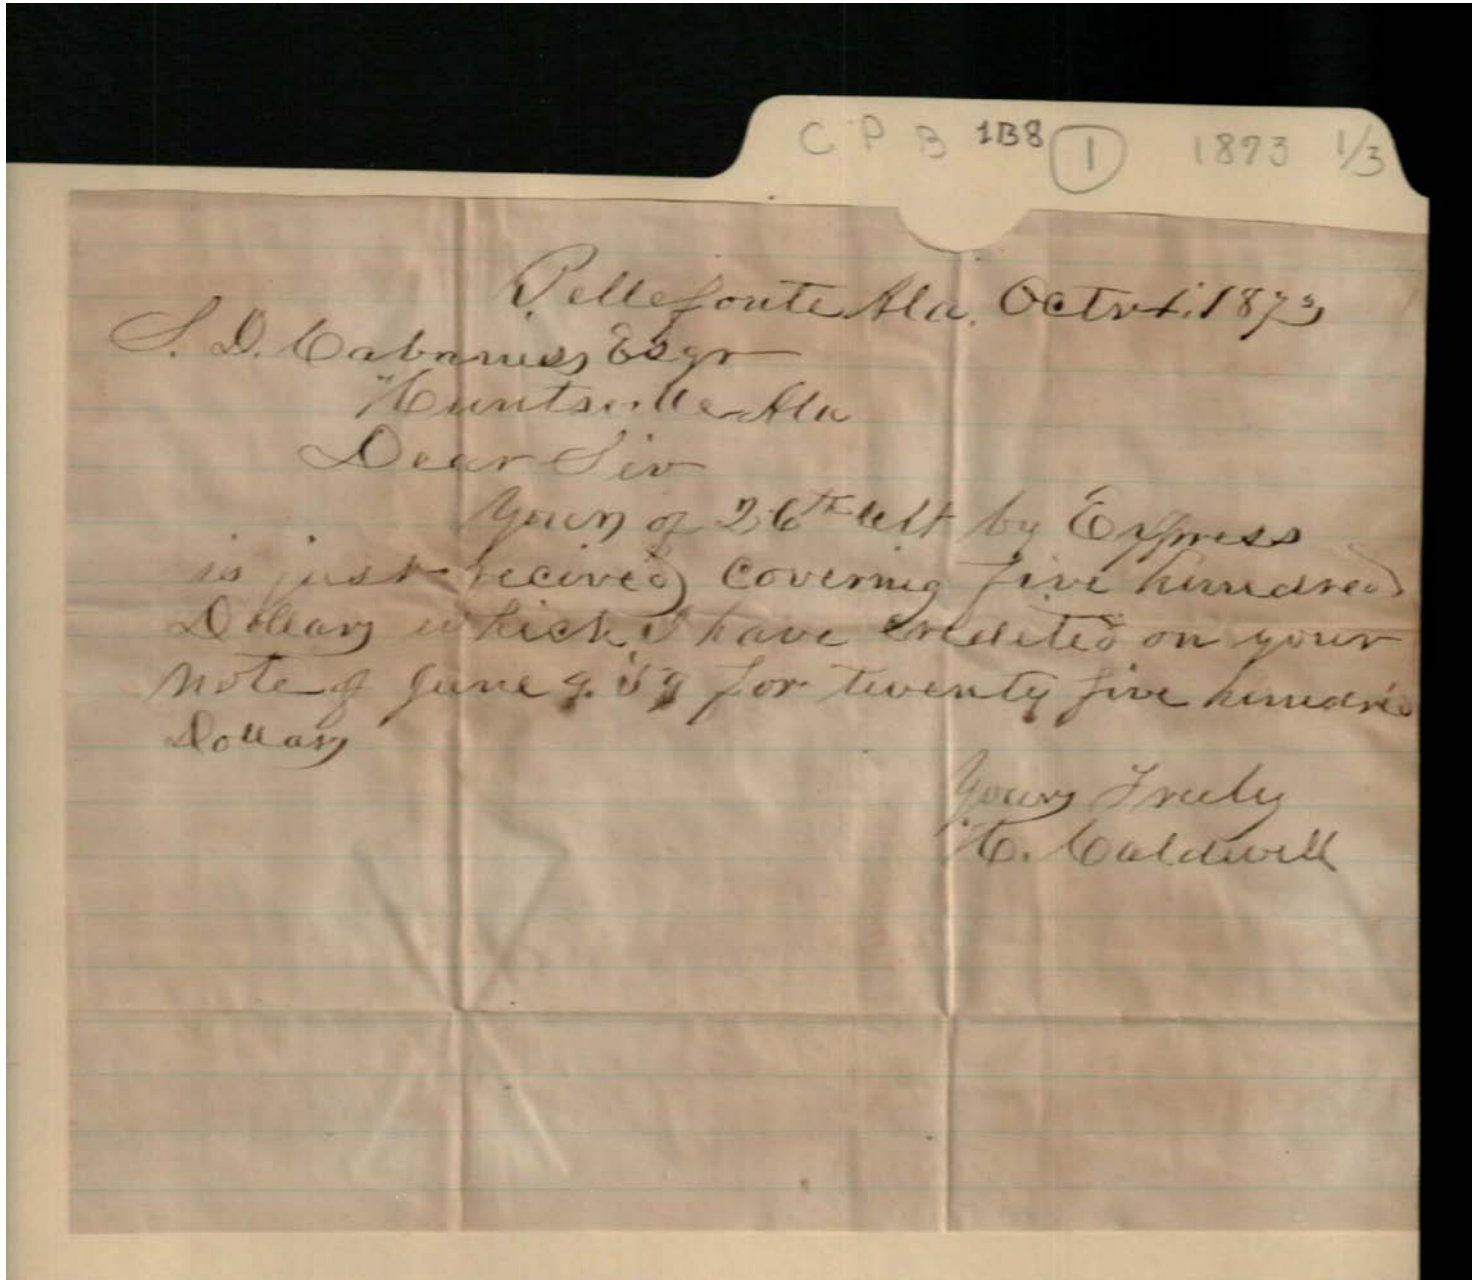 C P B 1B8 1 1873 1/3
Bellefonte Ala. Octr 1. 1873
S. D. Cabaniss Esqr
Huntsville Ala
Dear Sir
Yours of 26th ult by Express
is just recived covering five hundred
Dollars which I have credited on your
note of June 9. '59 for twenty five hundred
Dollars
Yours Truly
H. Caldwell